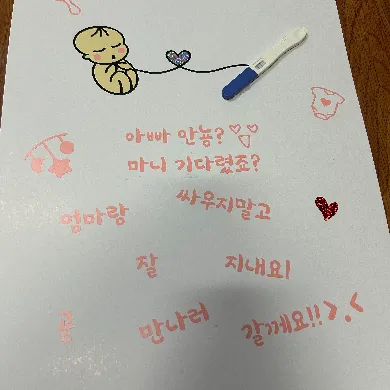 아빠 안뇽?
마니 기다렸죠?
엄마랑 싸우지말고
잘 지내요!
곧 만나러 갈께요!!